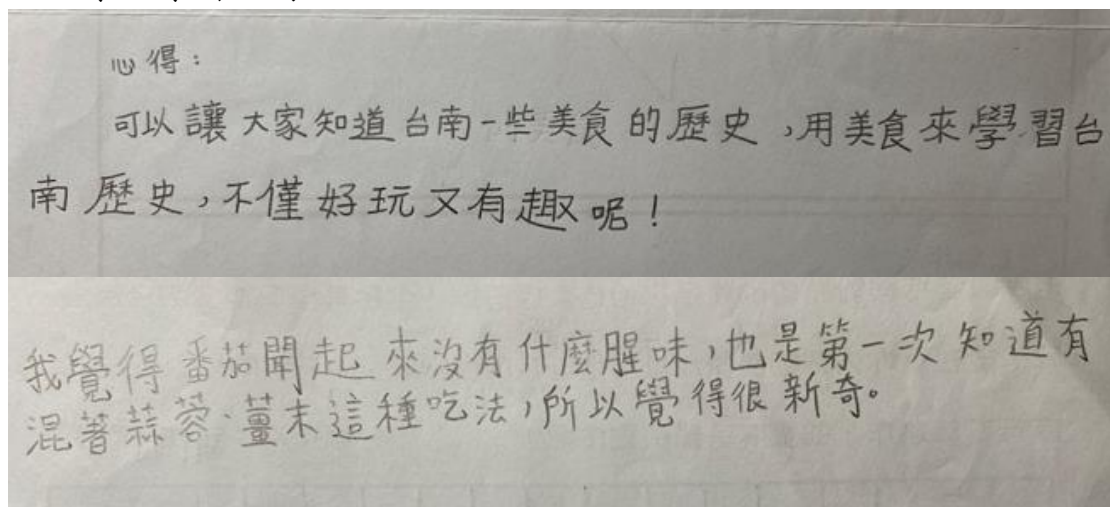 心得：
可以讓大家知道台南一些美食的歷史，用美食來學習台
南歷史，不僅好玩又有趣呢！
我覺得番茄聞起來沒有什麼腥味，也是第一次知道有
混著蒜蓉、薑末這種吃法，所以覺得很新奇。